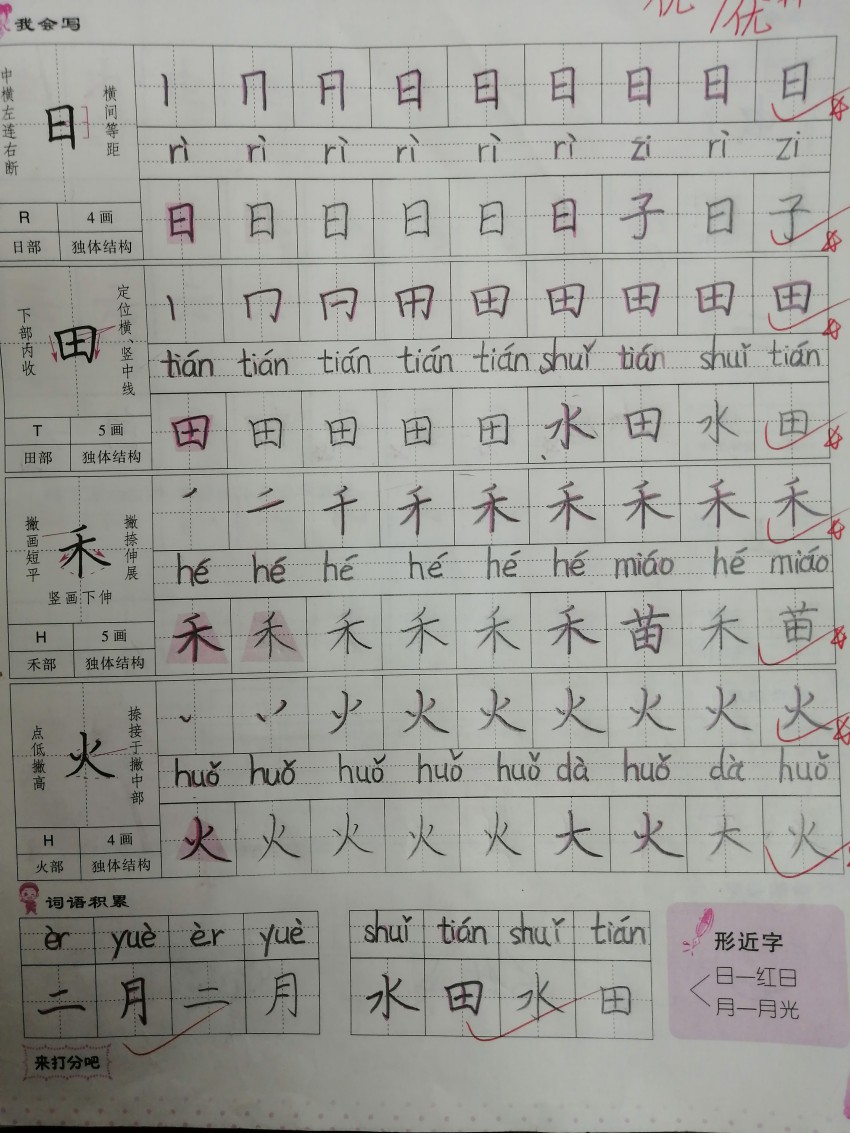 我会写
优 / 优
中横左连右断 日 横间等距 丨 冂 月 日 日 日 日 日 日
rì rì rì rì rì rì zi rì zi
R 4画 日 日 日 日 日 日 子 日 子
日部 独体结构
下部内收 田 定位横、竖中线 丨 冂 曰 用 田 田 田 田 田
tián tián tián tián tián shuǐ tián shuǐ tián
T 5画 田 田 田 田 田 水 田 水 田
田部 独体结构
撇画短平 禾 撇捺伸展 丿 二 千 禾 禾 禾 禾 禾
竖画下伸
hé hé hé hé hé hé miáo hé miáo
H 5画 禾 禾 禾 禾 禾 禾 苗 禾 苗
禾部 独体结构
点低撇高 火 捺接于撇中部 丶 丷 火 火 火 火 火 火
huǒ huǒ huǒ huǒ huǒ dà huǒ dà huǒ
H 4画 火 火 火 火 火 大 火 大 火
火部 独体结构
词语积累
èr yuè èr yuè shuǐ tián shuǐ tián
二 月 二 月 水 田 水 田
形近字
日—红日
月—月光
来打分吧